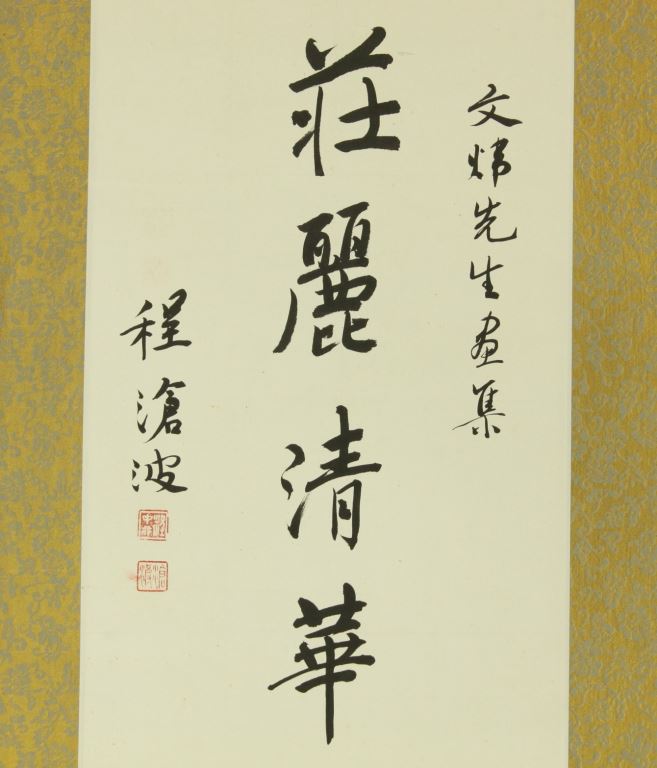 文煒先生画集
莊麗清華
程滄波